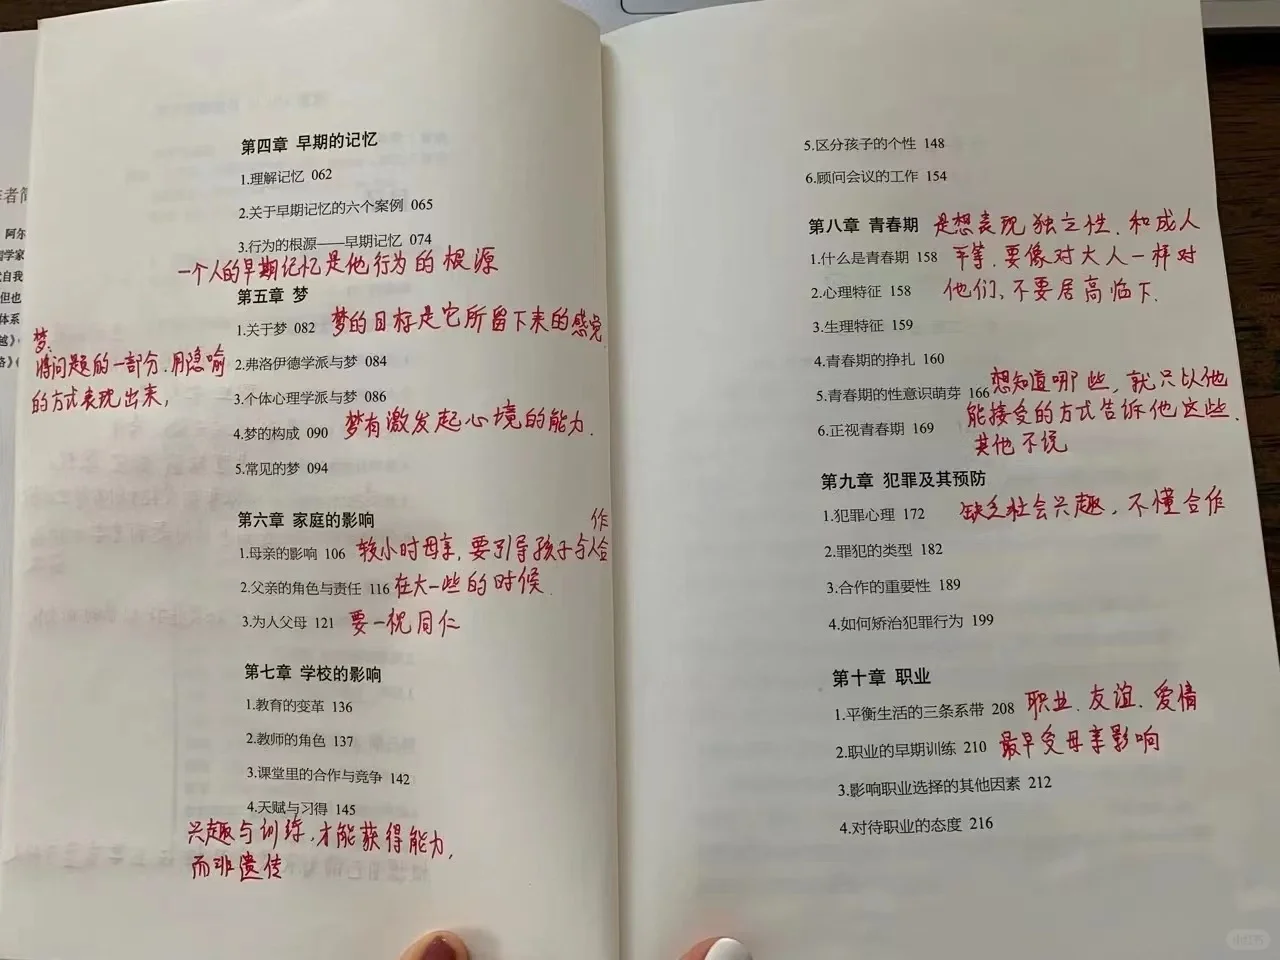 第四章 早期的记忆
1.理解记忆 062
2.关于早期记忆的六个案例 065
3.行为的根源——早期记忆 074
一个人的早期记忆是他行为的根源
第五章 梦
1.关于梦 082 梦的目标是它所留下来的感觉
梦:
将问题的一部分,用隐喻
的方式表现出来,
2.弗洛伊德学派与梦 084
3.个体心理学派与梦 086
4.梦的构成 090 梦有激发起心境的能力.
5.常见的梦 094
第六章 家庭的影响
1.母亲的影响 106 较小时母亲,要引导孩子与人合作
2.父亲的角色与责任 116 在大一些的时候
3.为人父母 121 要一视同仁
第七章 学校的影响
1.教育的变革 136
2.教师的角色 137
3.课堂里的合作与竞争 142
4.天赋与习得 145
兴趣与训练,才能获得能力,
而非遗传
5.区分孩子的个性 148
6.顾问会议的工作 154
第八章 青春期 是想表现独立性,和成人
1.什么是青春期 158 平等,要像对大人一样对
2.心理特征 158 他们,不要居高临下.
3.生理特征 159
4.青春期的挣扎 160
5.青春期的性意识萌芽 166 想知道哪些,就只以他
能接受的方式告诉他这些.
6.正视青春期 169 其他不说
第九章 犯罪及其预防
1.犯罪心理 172 缺乏社会兴趣,不懂合作
2.罪犯的类型 182
3.合作的重要性 189
4.如何矫治犯罪行为 199
第十章 职业
1.平衡生活的三条系带 208 职业、友谊、爱情
2.职业的早期训练 210 最早受母亲影响
3.影响职业选择的其他因素 212
4.对待职业的态度 216
小红书